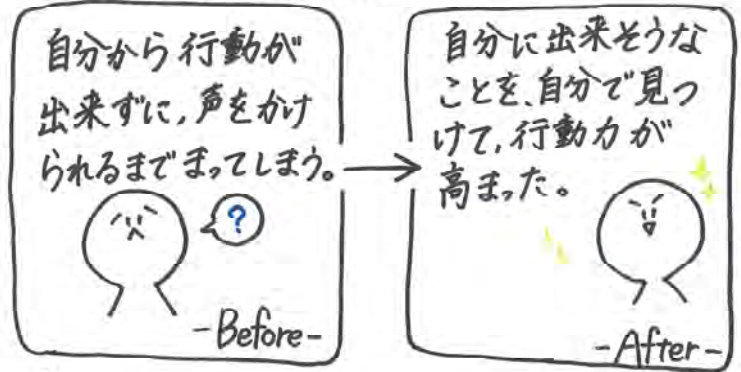 自分から行動が
出来ずに,声をかけ
られるまでまってしまう。
?
-Before-
自分に出来そうな
ことを、自分で見つ
けて,行動力が
高まった。
-After-